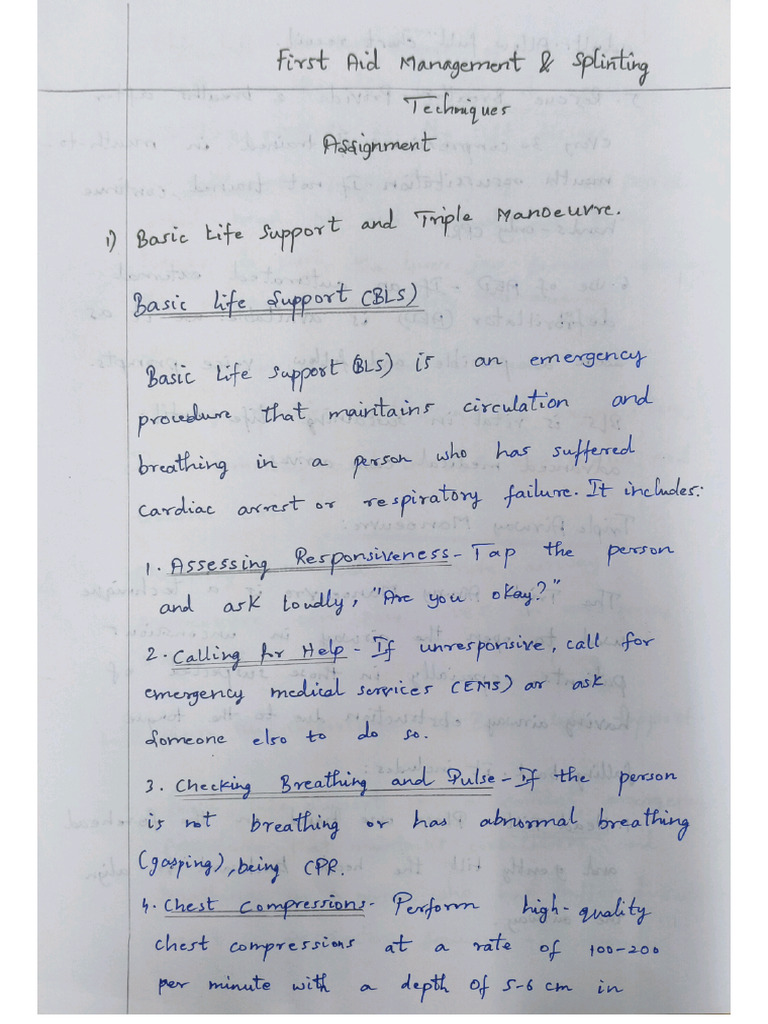 First Aid Management & Splinting
Techniques
Assignment
1) Basic Life Support and Triple Manoeuvre.
Basic Life Support (BLS)
Basic Life Support (BLS) is an emergency
procedure that maintains circulation and
breathing in a person who has suffered
cardiac arrest or respiratory failure. It includes:
1. Assessing Responsiveness - Tap the person
and ask loudly, "Are you okay?"
2. Calling for Help - If unresponsive, call for
emergency medical services (EMS) or ask
someone else to do so.
3. Checking Breathing and Pulse - If the person
is not breathing or has abnormal breathing
(gasping), being CPR.
4. Chest Compressions - Perform high-quality
chest compressions at a rate of 100-200
per minute with a depth of 5-6 cm in